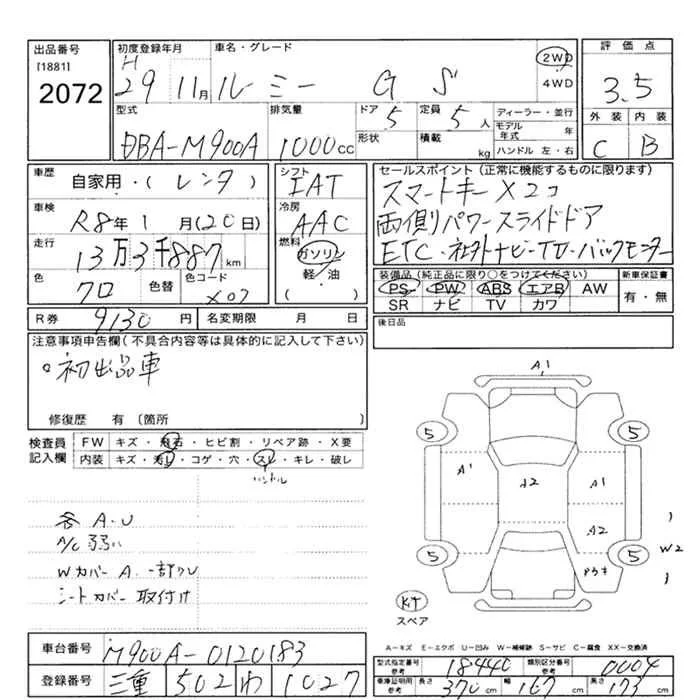 出品番号 [1881] 2072
初度登録年月 H 29 11月
車名・グレード ルーミー G S
2WD 4WD
評価点 3.5
外装 C 内装 B
型式 DBA-M900A
排気量 1000cc
ドア 5 形状
定員 5人 積載 kg
ディーラー・並行
モデル年式 年
ハンドル 左・右
車歴 自家用・(レンタ)
車検 R8年1月(20日)
走行 13万3千887km
色 クロ 色替 色コード X07
シフト IAT
冷房 AAC
燃料 ガソリン 軽・油 ( )
セールスポイント(正常に機能するものに限ります)
スマートキー×2コ
両側パワースライドドア
ETC・社外ナビ-TV・バックモニター
装備品(純正品に限り○をつけてください)
PS PW ABS エアB AW
SR ナビ TV カワ
新車保証書 有・無
R券 9130円 名変期限 月 日
後日品
注意事項申告欄(不具合内容等は具体的に記入して下さい)
。初出品車
修復歴 有〔箇所
検査員記入欄
FW キズ・飛石・ヒビ割・リペア跡・X要
内装 キズ・汚れ・コゲ・穴・スレ・キレ・破レ
ハンドル
各 A・U
A/C 弱い
Wカバー A. 一部クU
シートカバー 取付け
A1
5 5
A1 A2 A1
A2
5 5
Pウキ
W2
KT
スペア
A-キズ E-エクボ U-凹み W-補修跡 S-サビ C-腐食 XX-交換済
車台番号 M900A-0120183
登録番号 三重 502 わ 1027
型式指定番号 参考 18440 類別区分番号 参考 0004
車庫証明用 参考 長さ 370cm 幅 167cm 高さ 173cm